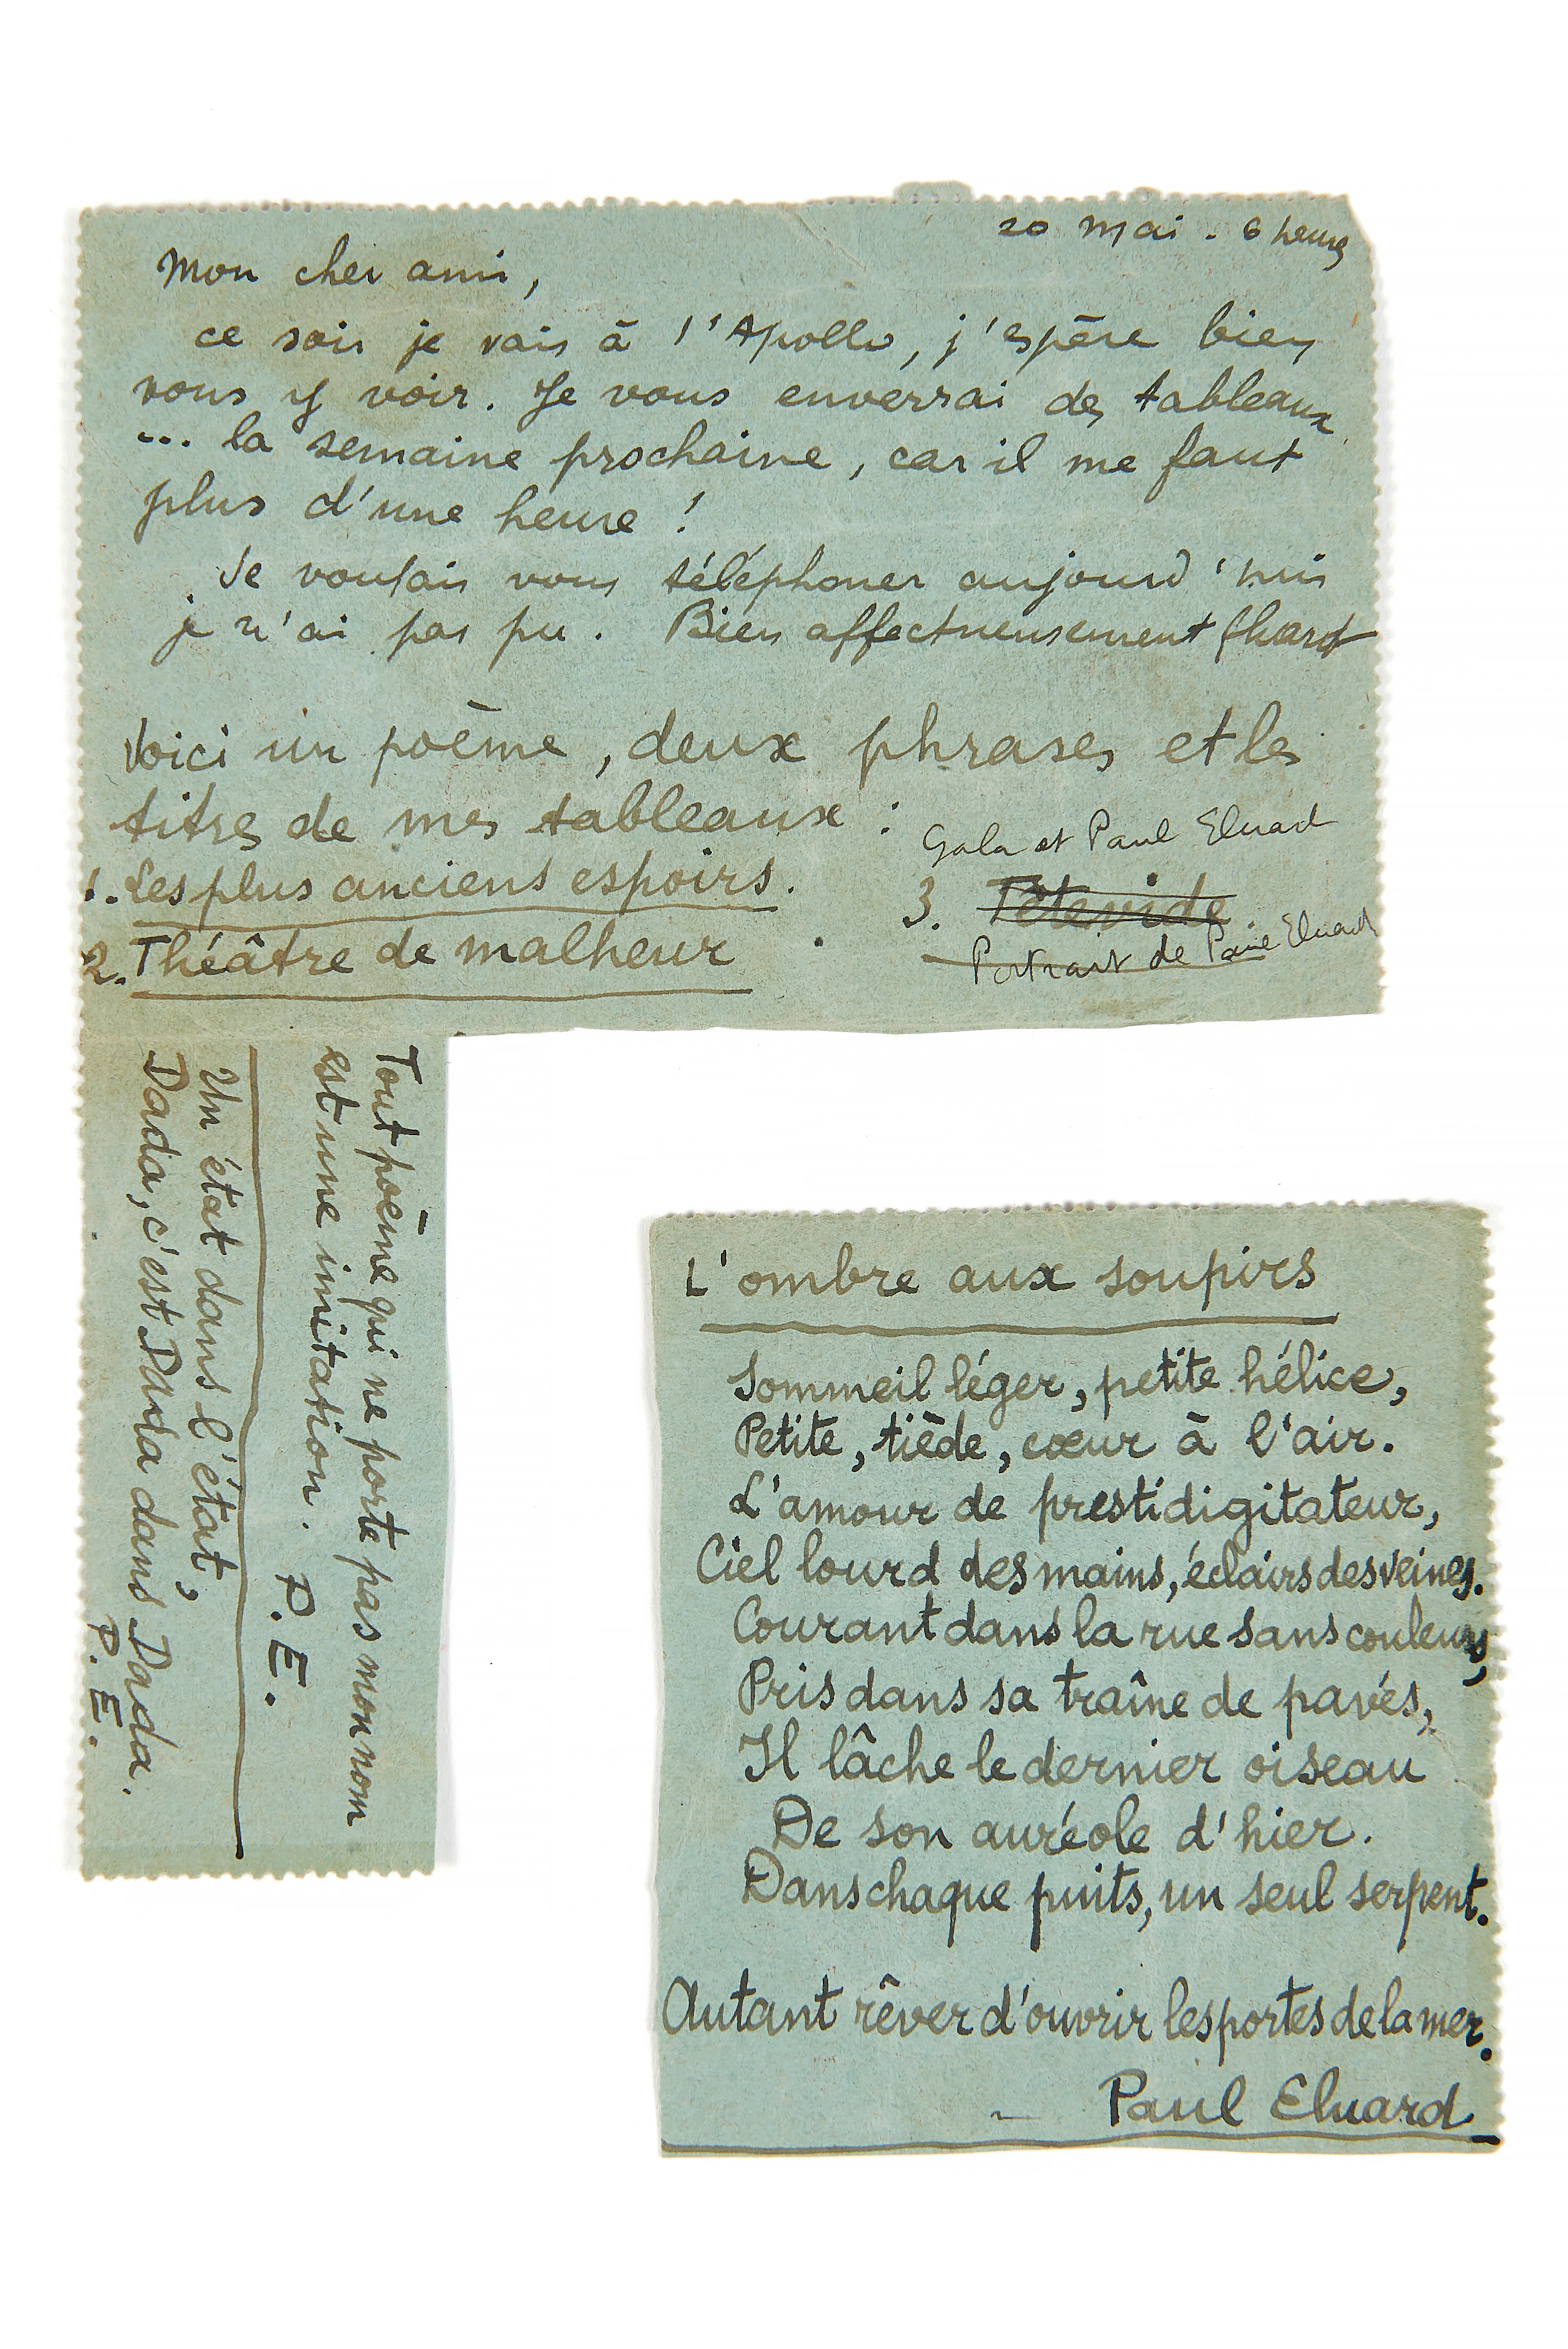 20 mai . 6 heures
Mon cher ami,
ce soir je vais à l'Apollo, j'espère bien
vous y voir. Je vous enverrai des tableaux
... la semaine prochaine, car il me faut
plus d'une heure !
Je voulais vous téléphoner aujourd'hui
je n'ai pas pu. Bien affectueusement Eluard
Voici un poème, deux phrases et les
titres de mes tableaux :
1. Les plus anciens espoirs.
2. Théâtre de malheur.
Gala et Paul Eluard
3. Tête vide
Portrait de Paul Eluard
Tout poème qui ne porte pas mon nom
est une imitation. P. E.
Un état dans l'état,
Dada, c'est Dada dans Dada.
P. E.
L'ombre aux soupirs
Sommeil léger, petite hélice,
Petite, tiède, cœur à l'air.
L'amour de prestidigitateur,
Ciel lourd des mains, éclairs des veines.
Courant dans la rue sans couleurs,
Pris dans sa traîne de pavés,
Il lâche le dernier oiseau
De son auréole d'hier.
Dans chaque puits, un seul serpent.
Autant rêver d'ouvrir les portes de la mer.
Paul Eluard